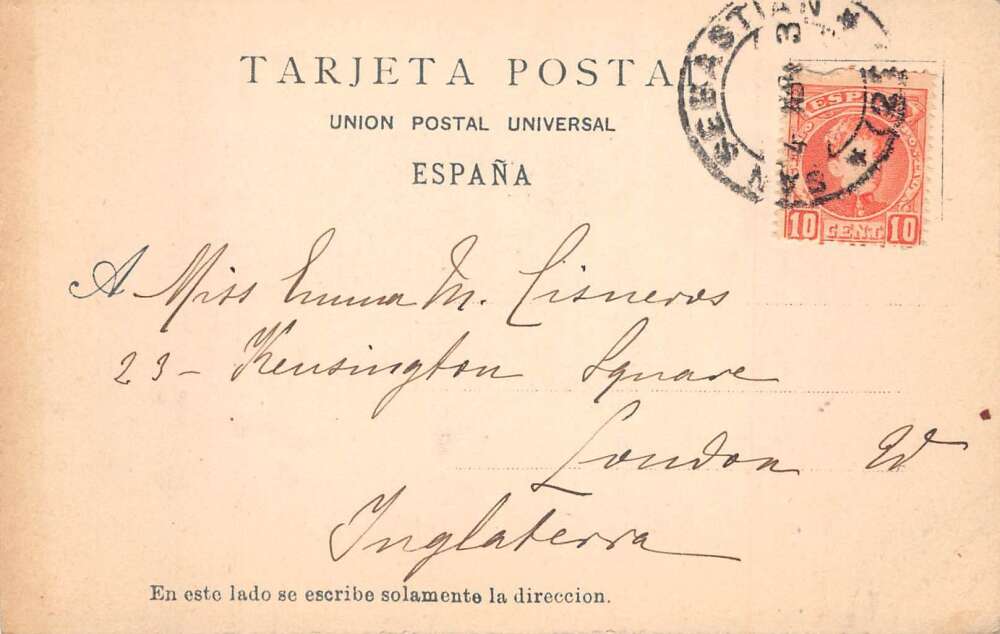 TARJETA POSTAL
UNION POSTAL UNIVERSAL
ESPAÑA
SAN SEBASTIAN
4 3
ESPAÑA
10 CENT. 10
A Miss Emma M. Cisneros
23 - Kensington Square
London W
Inglaterra
En este lado se escribe solamente la direccion.